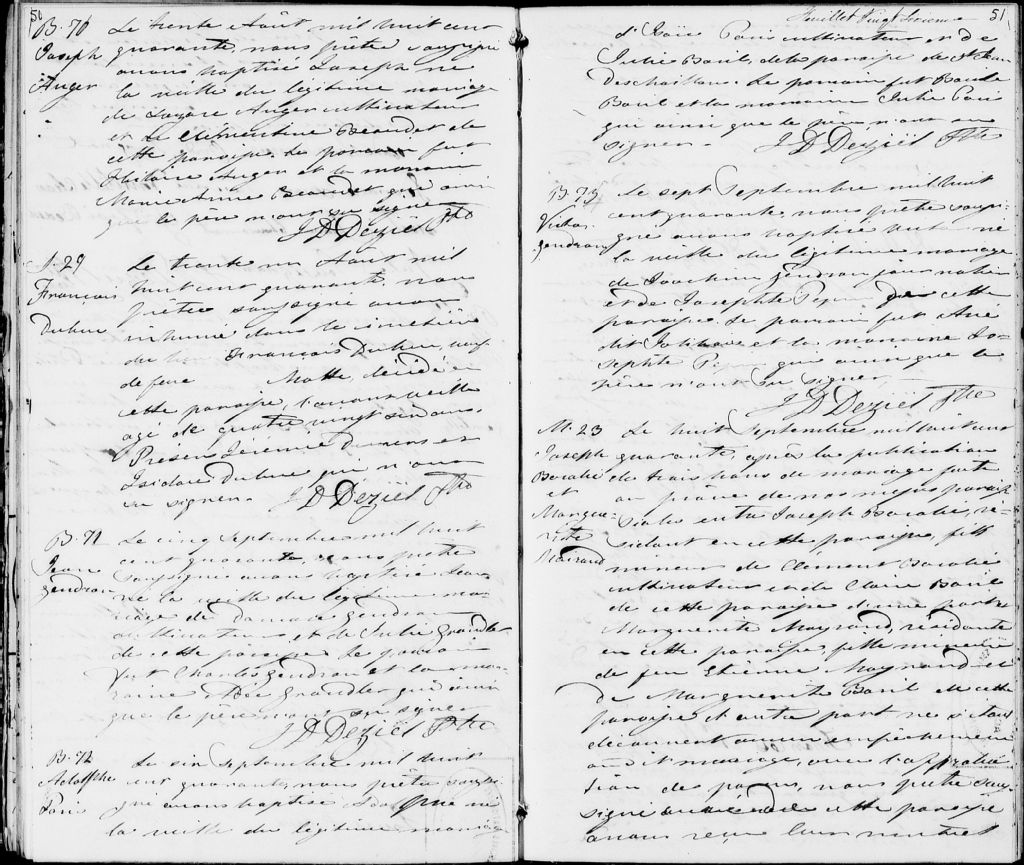 50
B. 70
Joseph
Auger
Le trente Août mil huit cent
quarante, nous prêtre soussigné
avons baptisé Joseph né
la veille du légitime mariage
de Lazare Auger cultivateur
et de Clémentine Beaudet de
cette paroisse. Le parrain fut
Hilaire Auger et la marraine
Marie Aimée Beaudet qui ainsi
le père n'ont su signer
J D Déziel Ptre
S. 29
François
Dubuc
Le trente un Août mil
huit cent quarante, nous
prêtre soussigné avons
inhumé dans le cimetière
du François Dubuc, veuf
de feue Matte décédé en
cette paroisse, l'avant veille
agé de quatre vingt ans.
Présens Jérémie et
Isidore Dubuc qui n'ont
su signer.
J D Déziel Ptre
B. 71
Jean
Gendron
Le cinq Septembre mil huit
cent quarante nous prêtre
soussigné avons baptisé Jean
né la veille du légitime ma-
riage de Damase Gendron
cultivateur et de Julie Grandler
de cette paroisse. Le parrain
fut Charles Gendron et la mar-
raine Grandler qui ainsi
que le père n'ont su signer
J D Déziel Ptre
B. 72
Adolphe
Paris
Le six Septembre mil huit
cent quarante, nous prêtre soussi-
gné avons baptisé né
la veille du légitime mariage
Feuillet Vingt Sixième
51
Paris cultivateur et de
Julie Baril, de la paroisse de St Jean
Deschaillons. Le parrain fut
Baril et la marraine Julie Paris
qui ainsi que le père n'ont su
signer.
J D Déziel Ptre
B. 73
Victor
Gendron
Le sept Septembre mil huit
cent quarante, nous prêtre soussi-
gné avons baptisé Victor né
la veille du légitime mariage
de Joachim Gendron journalier
et de Josephte Pepin de cette
paroisse. Le parrain fut
dit et la marraine Jo-
sephte qui ainsi que le
père n'ont su signer
J D Déziel Ptre
M. 23
Joseph
et
Margue-
rite
Mairand
Le huit Septembre mil huit cent
quarante, après la publication
de trois bans de mariage faite
au prône de nos messes parois-
siales entre Joseph ré-
sidant en cette paroisse, fils
mineur de Clément
cultivateur et de Claire Baril
de cette paroisse d'une part
Marguerite Mayrand, résidante
en cette paroisse, fille mineure
de feu Etienne Mayrand et
de Marguerite Baril de cette
paroisse d'autre part ne s'étant
découvert aucun empêchement
au dit mariage, avec l'approba-
tion de parens, nous prêtre sous-
signé de cette paroisse
avons reçu leur mutuel